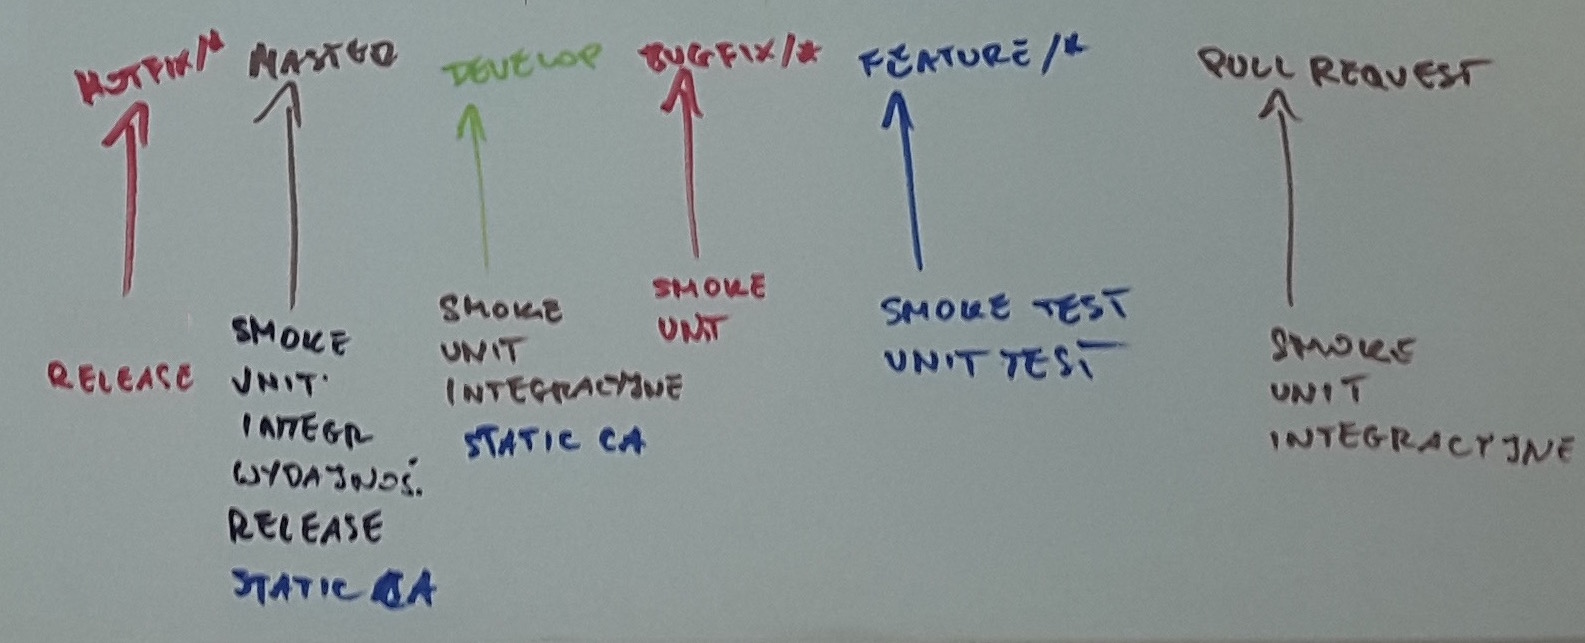 HOTFIX/*
RELEASE
MASTER
SMOKE
UNIT.
INTEGR
WYDAJNOŚ.
RELEASE
STATIC CA
DEVELOP
SMOKE
UNIT
INTEGRACYJNE
STATIC CA
BUGFIX/*
SMOKE
UNIT
FEATURE/*
SMOKE TEST
UNIT TEST
PULL REQUEST
SMOKE
UNIT
INTEGRACYJNE